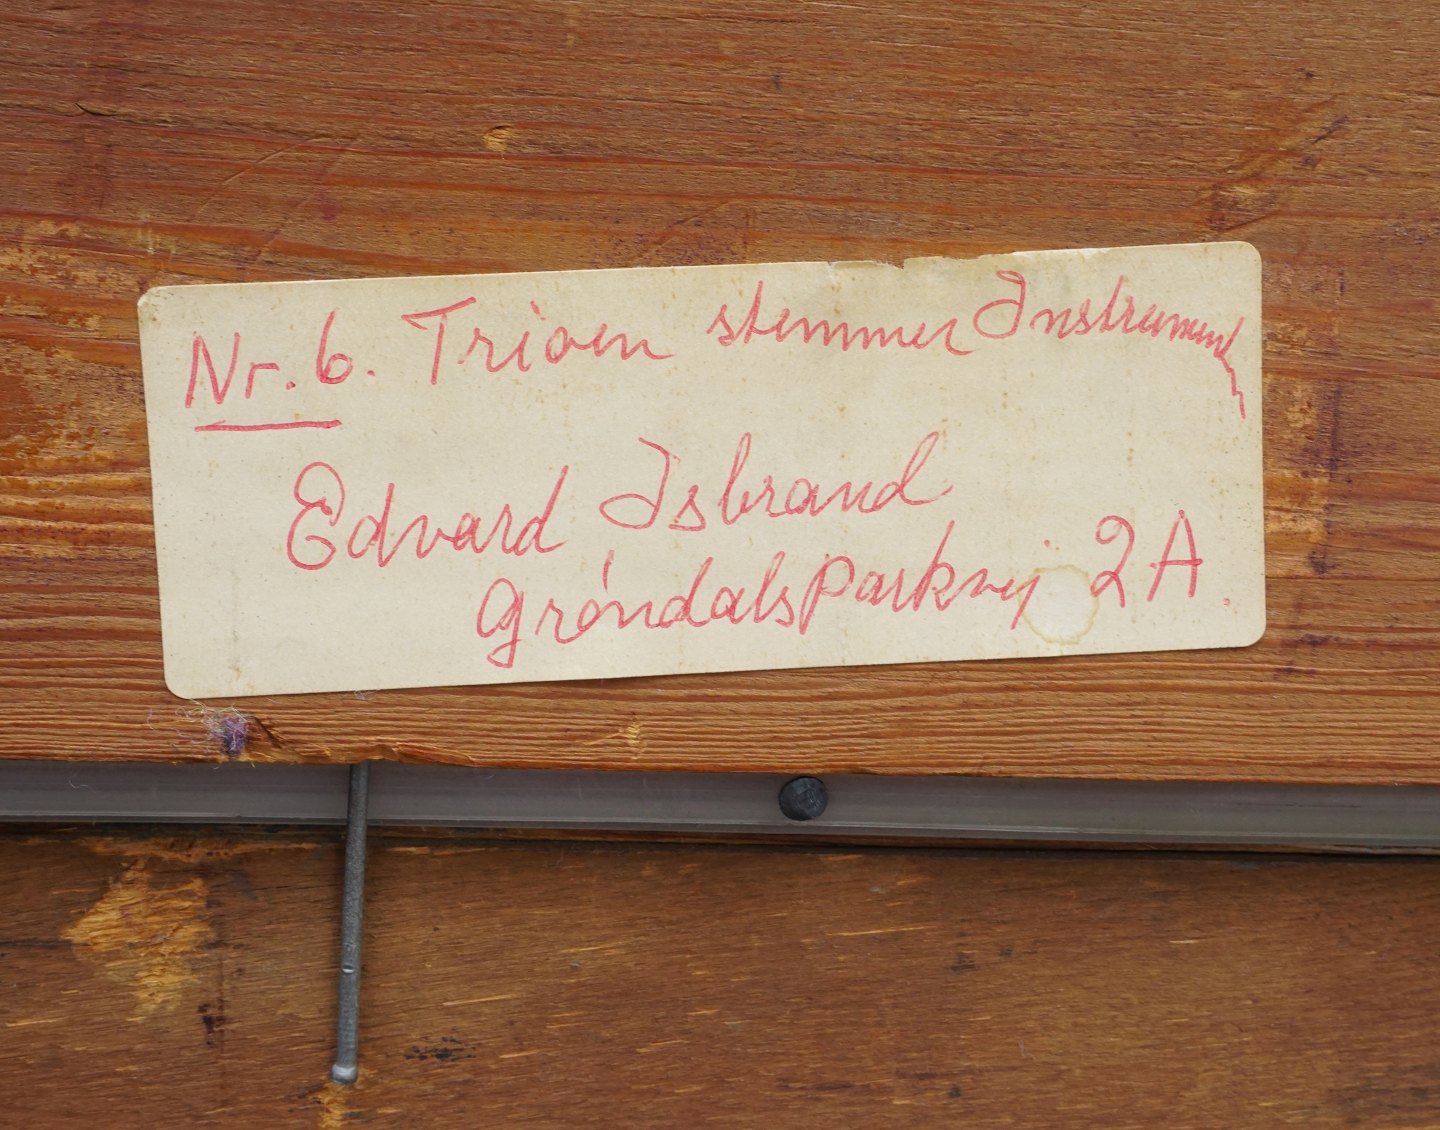 Nr. 6. Trioen stemmer Instrumenter
Edvard Isbrand
Grøndals Parkvej 2A.